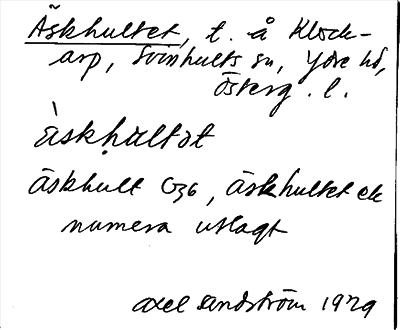 Äskhultet, t. å Klock-
arp, Svinhults sn, Ydre hd,
Österg. l.
äskhultət
äskhult O36, äskhultet ek
numera utlagt
Axel Sandström 1929